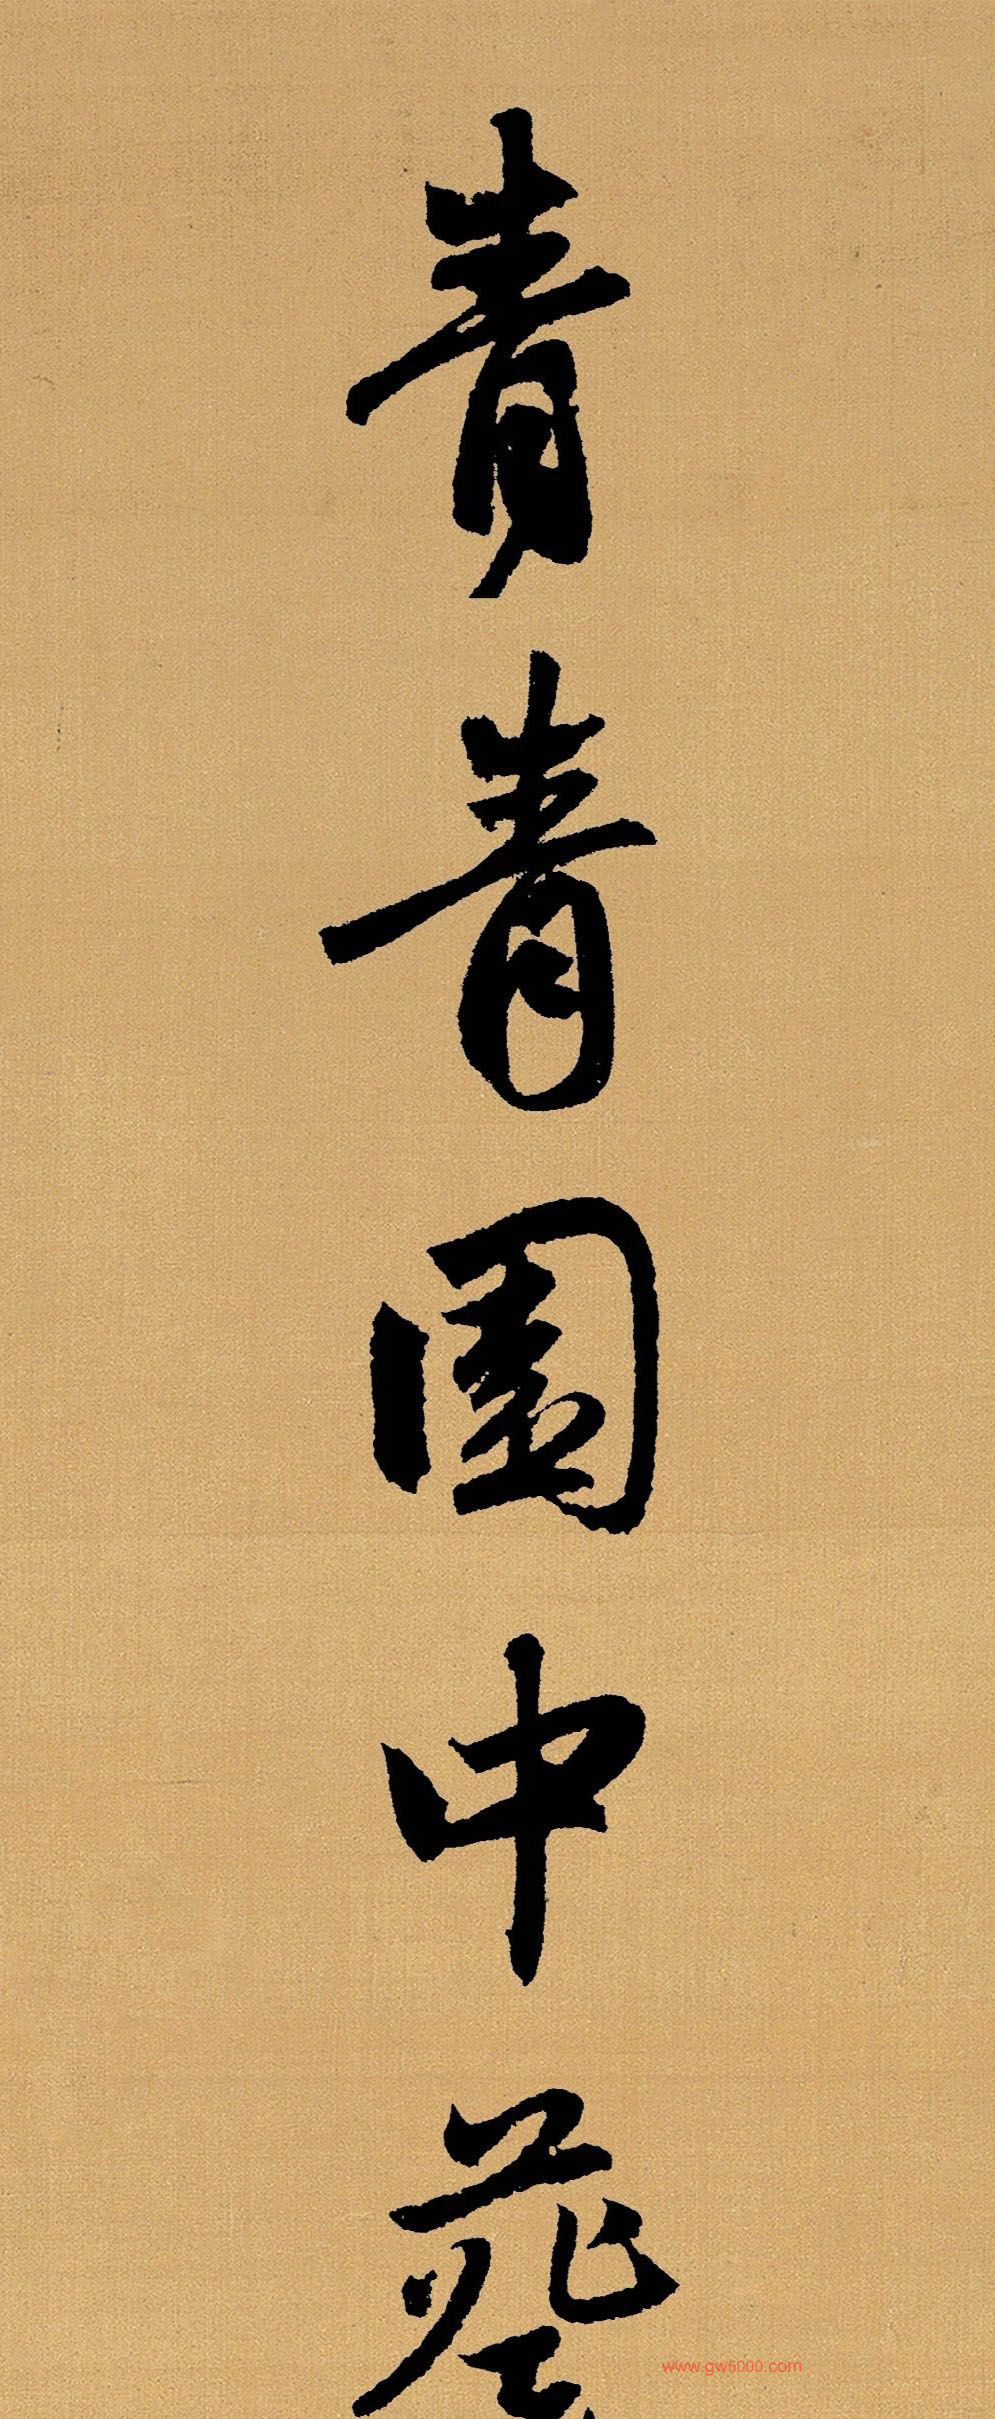 青青園中葵
www.gw5000.com